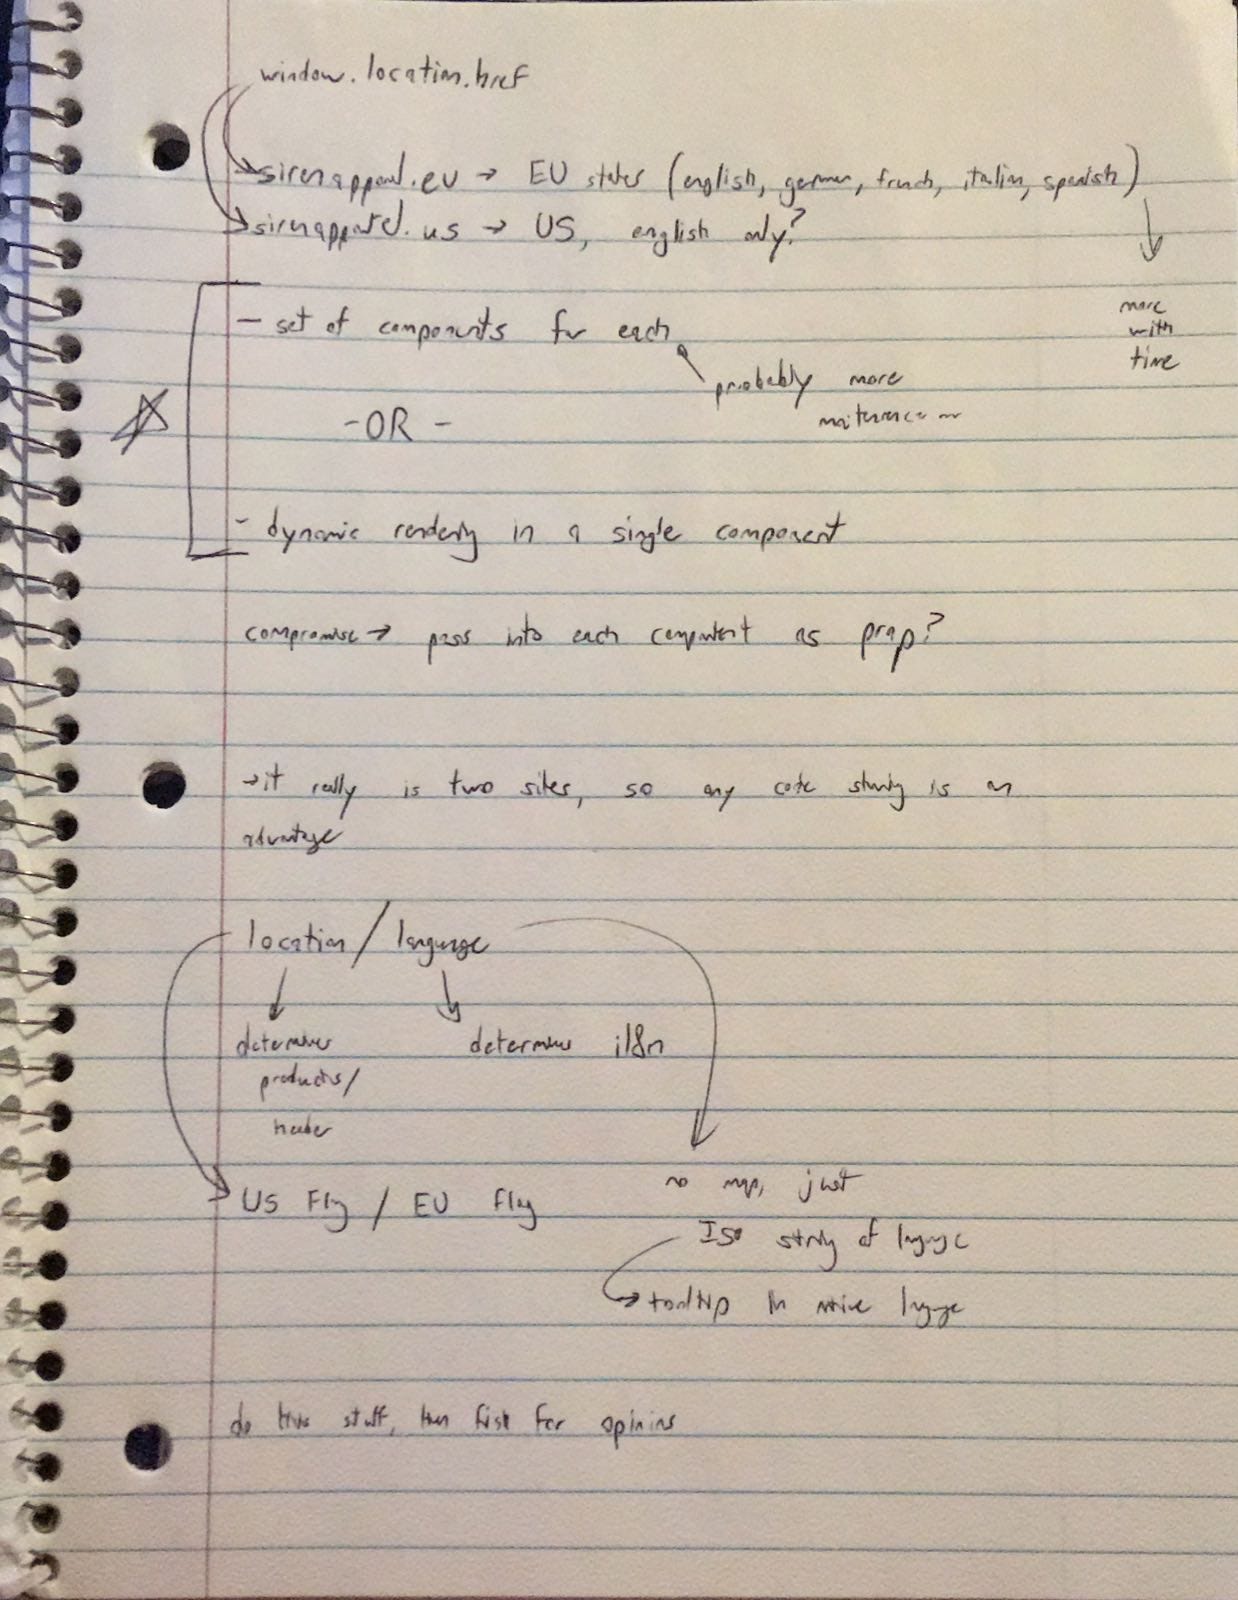 window.location.href
sirenapparel.eu → EU states (english, german, french, italian, spanish)
sirenapparel.us → US, english only?
more
with
time
- set of components for each
probably more
-OR-
- dynamic rendering in a single component
compromise → pass into each component as prop?
→ it really is two sites, so any code sharing is an
advantage
location / language
determines
products/
header
determines i18n
US flag / EU flag
no map, just
ISO string of language
→ tooltip in native language
do this stuff, then fish for opinions